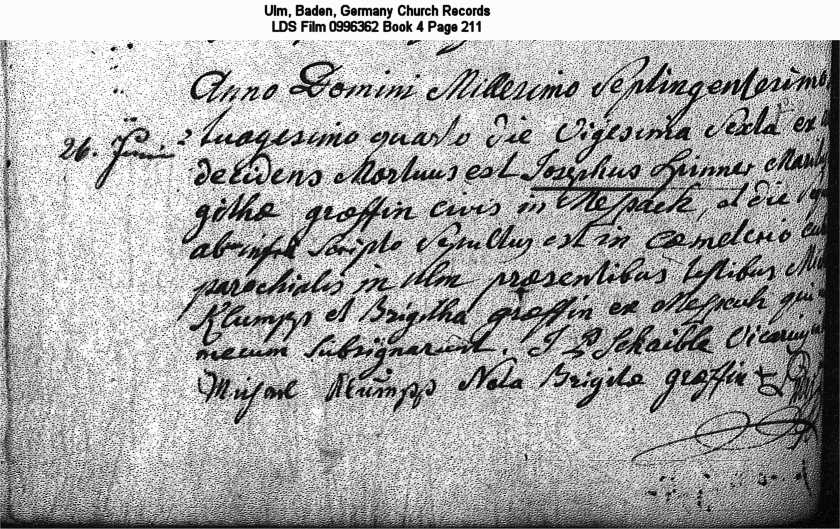 Ulm, Baden, Germany Church Records
LDS Film 0996362 Book 4 Page 211
Anno Domini Millesimo Septingentesimo
26. Junii tuagesimo quarto die Vigesima Sexta ex
decidens Mortuus est Josephus Grinner
githæ græffin civis in Mespach, et die
infra Scripto Sepultus est in cæmeterio
parochialis in Ulm præsentibus testibus
Klumpp et Brigitha græffin ex qui
mecum subsignarunt. J P Schaible Vicarius
Michael Klumpp Nota Brigite græffin +